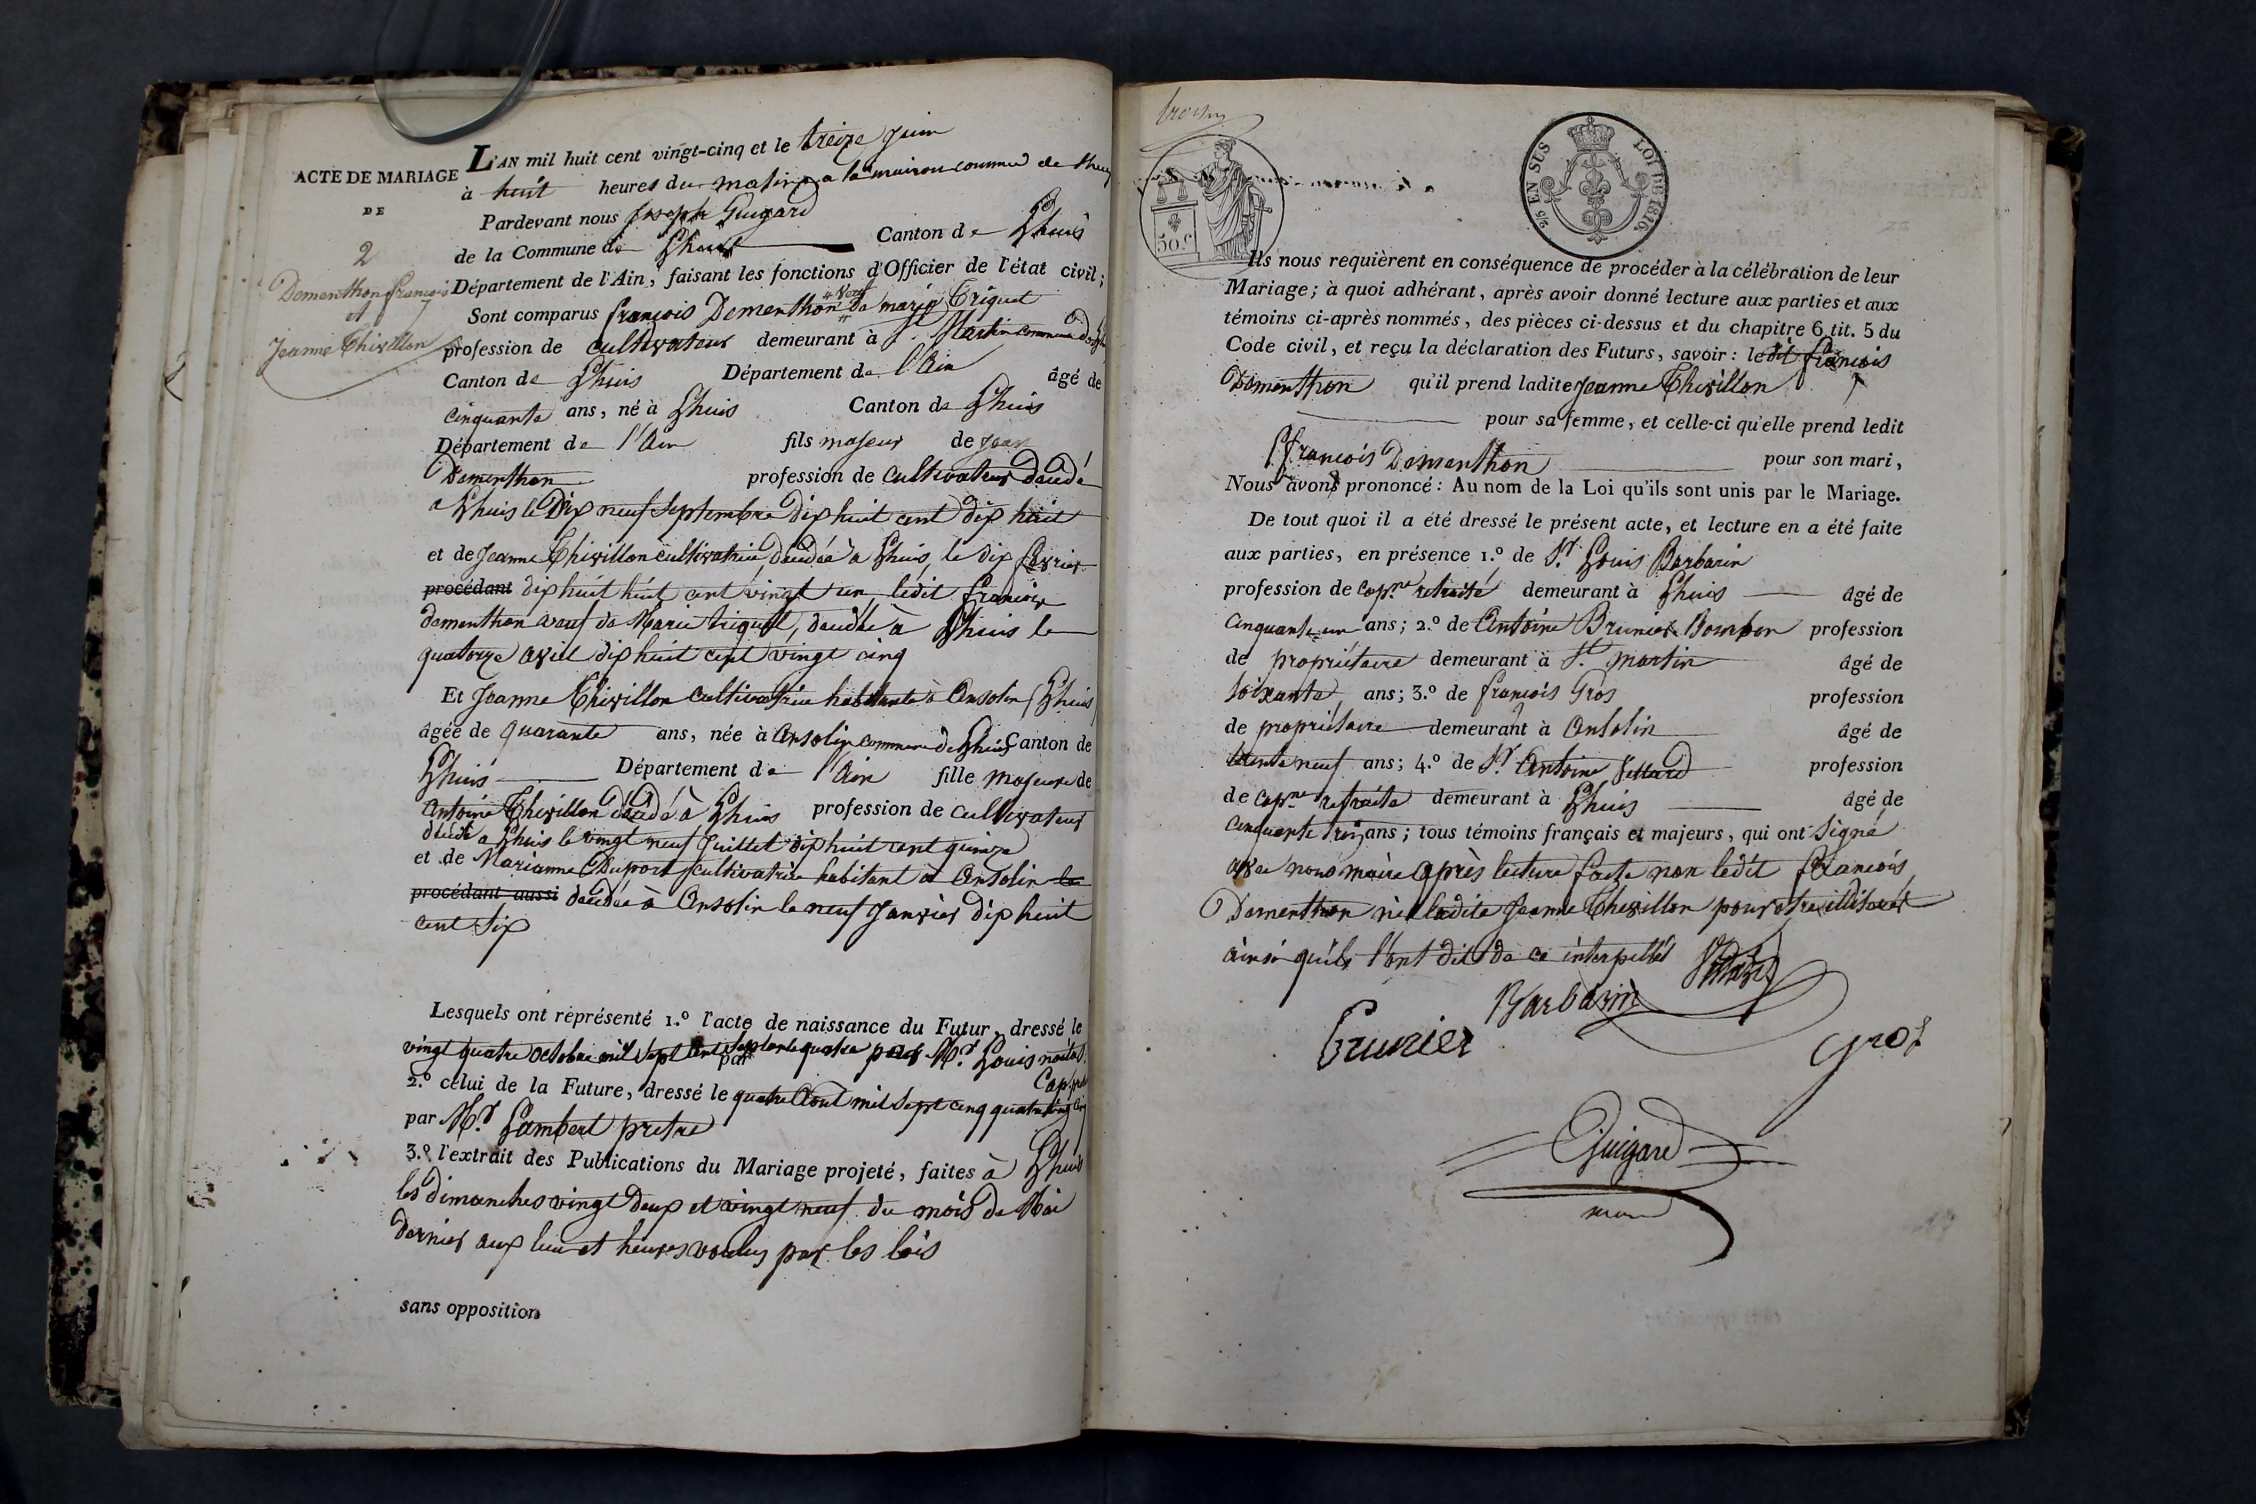 ACTE DE MARIAGE
DE
2
Dementhon françois
et
Jeanne Thivillon
L'AN mil huit cent vingt-cinq et le treize Juin
à huit heures du matin a la maison commune de Lhuis
Pardevant nous Joseph Guigard
de la Commune de Lhuis Canton de Lhuis
Département de l'Ain, faisant les fonctions d'Officier de l'état civil;
Sont comparus françois Dementhon veuf de marie Triquet
profession de cultivateur demeurant à St Martin commune de Lhuis
Canton de Lhuis Département de l'Ain âgé de
cinquante ans, né à Lhuis Canton de Lhuis
Département de l'Ain fils majeur de Jean
Dementhon profession de cultivateur décédé
a Lhuis le Dix neuf Septembre dix huit cent dix huit
et de Jeanne Thivillon cultivatrice, décédée à Lhuis, le dix fevrier
procédant dix huit huit cent vingt un, ledit francois
dementhon veuf de Marie triquet, décédée à Lhuis le
quatorze avril dix huit cent vingt cinq
Et Jeanne Thivillon cultivatrice habitante à Ansolin (Lhuis)
âgée de quarante ans, née à Ansolin commune de Lhuis Canton de
Lhuis Département de l'Ain fille majeure de
Antoine Thivillon décédé à Lhuis profession de cultivateur
décédé a Lhuis le vingt neuf Juillet dix huit cent quinze
et de Marianne Duport cultivatrice habitant à Ansolin
procédant aussi décédée à Ansolin le neuf Janvier dix huit
cent six
Lesquels ont représenté 1.º l'acte de naissance du Futur, dressé le
vingt quatre octobre mil sept cent septante quatre par Mr Louis
par
2.º celui de la Future, dressé le quatre Aout mil sept cinq quatre vingt cinq
par Mr Lambert pretre
3.º l'extrait des Publications du Mariage projeté, faites à Lhuis
les dimanches vingt deux et vingt neuf du mois de Mai
dernier aux lieu et heures voulus par les lois
sans opposition
50 c
2/5 EN SUS LOI DE 1816.
Ils nous requièrent en conséquence de procéder à la célébration de leur
Mariage; à quoi adhérant, après avoir donné lecture aux parties et aux
témoins ci-après nommés, des pièces ci-dessus et du chapitre 6 tit. 5 du
Code civil, et reçu la déclaration des Futurs, savoir: ledit françois
Dementhon qu'il prend ladite Jeanne Thivillon
pour sa femme, et celle-ci qu'elle prend ledit
françois Dementhon pour son mari,
Nous avons prononcé: Au nom de la Loi qu'ils sont unis par le Mariage.
De tout quoi il a été dressé le présent acte, et lecture en a été faite
aux parties, en présence 1.º de Sr Louis Barbarin
profession de capne retraité demeurant à Lhuis âgé de
cinquante un ans; 2.º de Antoine Brunier Bourbon profession
de propriétaire demeurant à St martin âgé de
soixante ans; 3.º de françois Gros profession
de propriétaire demeurant à Ansolin âgé de
trente neuf ans; 4.º de Sr Antoine Vettard profession
de capne retraité demeurant à Lhuis âgé de
cinquante trois ans; tous témoins français et majeurs, qui ont signé
avec nous maire après lecture faite non ledit françois
Dementhon ni ladite Jeanne Thivillon pour etre illiteré
ainsi qu'ils l'ont dit de ce interpellés
Barbarin
Brunier
Gros
Guigard
maire